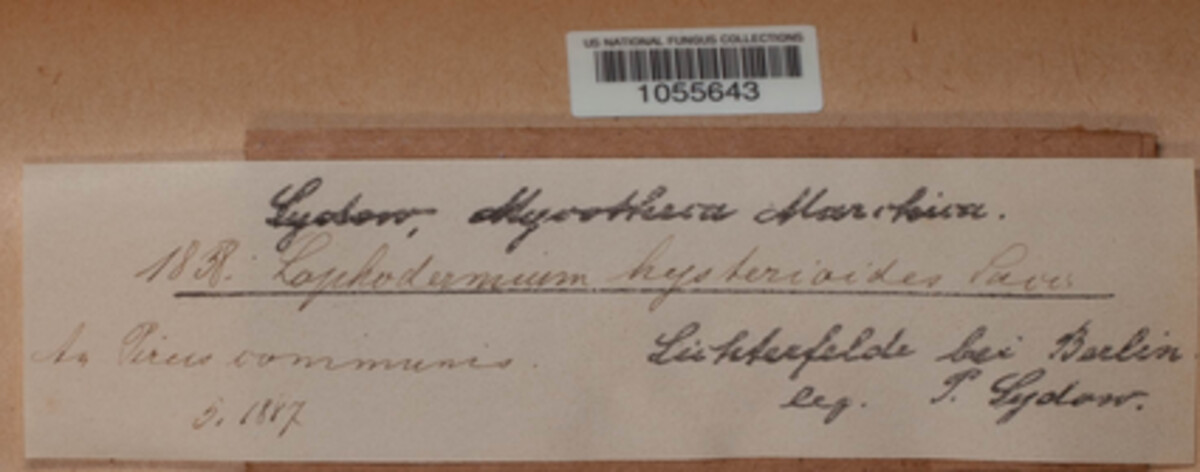 US NATIONAL FUNGUS COLLECTIONS
1055643
Sydow, Mycotheca Marchica.
Lophodermium hysterioides
An Pirus communis.
5. 1887
Lichterfelde bei Berlin
leg. P. Sydow.